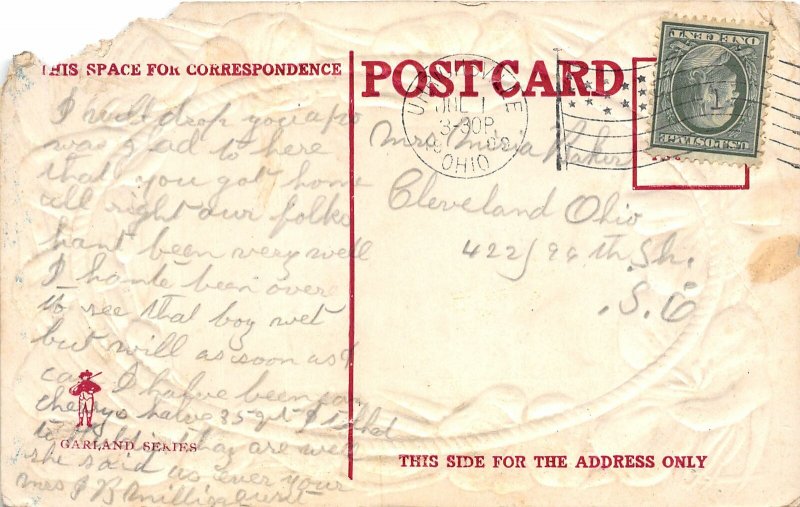 THIS SPACE FOR CORRESPONDENCE
POST CARD
UHRICHSVILLE
JUL 1
3-30P
OHIO
U.S.POSTAGE
1
ONE CENT
I will drop you a po
was glad to here
that you got home
all right our folks
hant been very well
I hante been over
to see that boy wet
but will as soon as I
can I hafve been
cherrys halve 35 qt I
to
they are well
she said as ever your
Mrs J B Milligan
Mrs Baker
Cleveland Ohio
4221 96 th St.
S. E
GARLAND SERIES
THIS SIDE FOR THE ADDRESS ONLY